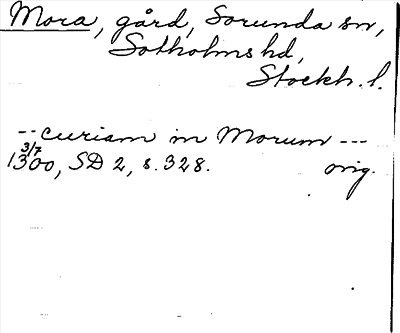 Mora, gård, Sorunda sn,
Sotholms hd,
Stockh. l.
-- curiam in Morum ---
3/7
1300, SD 2, s. 328. orig.